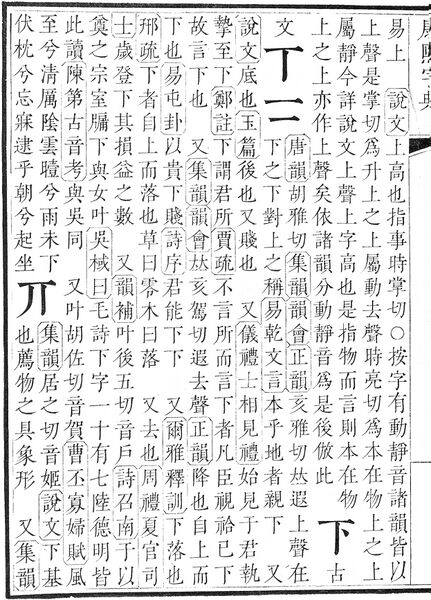 康熙字典
易上 說文上高也指事時掌切○按字有動靜音諸韻皆以
上聲是掌切爲升上之上屬動去聲時亮切爲本在物之上之上
屬靜今詳說文上聲上字高也是指物而言則本在物
上之上亦作上聲矣依諸韻分動靜音爲是後倣此
下 古
文 丅 𠄟
唐韻胡雅切集韻韻會正韻亥雅切𠀤遐上聲在
下之下對上之稱易乾文言本乎地者親下 又
說文底也玉篇後也又賤也 又儀禮士相見禮始見于君執
摯至下鄭註下謂君所賈疏不言所而言下者凡臣視袷已下
故言下也 又集韻韻會𠀤亥駕切遐去聲正韻降也自上而
下也易屯卦以貴下賤詩序君能下下 又爾雅釋訓下落也
邢疏下者自上而落也草曰零木曰落 又去也周禮夏官司
士歲登下其損益之數 又韻補叶後五切音戸詩召南于以
奠之宗室牖下與女叶吳棫曰毛詩下字一十有七陸德明皆
此讀陳第古音考與吳同 又叶胡佐切音賀曹丕寡婦賦風
至兮清厲陰雲曀兮雨未下
伏枕兮忘寐逮乎朝兮起坐
丌
集韻居之切音姬說文下基
也薦物之具象形 又集韻